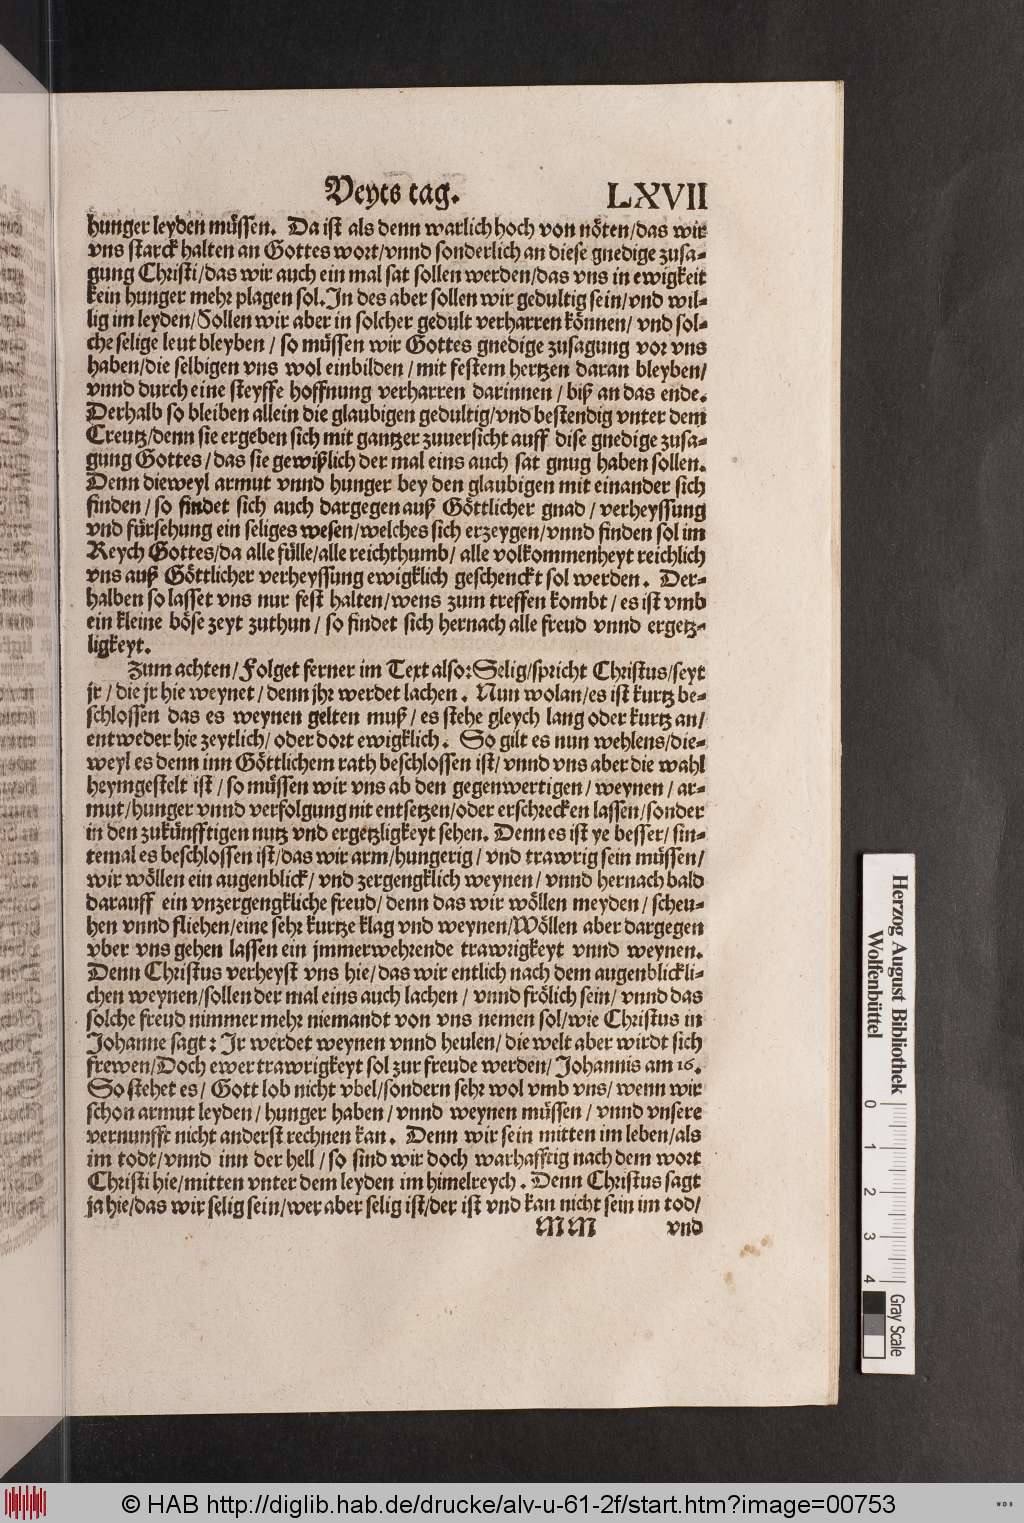 Veyts tag. LXVII
hunger leyden müssen. Da ist als denn warlich hoch von nöten/das wir
vns starck halten an Gottes wort/vnnd sonderlich an diese gnedige zusa-
gung Christi/das wir auch ein mal sat sollen werden/das vns in ewigkeit
kein hunger mehr plagen sol. In des aber sollen wir gedultig sein/vnd wil-
lig im leyden/Sollen wir aber in solcher gedult verharren können/ vnd sol-
che selige leut bleyben / so müssen wir Gottes gnedige zusagung vor vns
haben/die selbigen vns wol einbilden / mit festem hertzen daran bleyben/
vnnd durch eine steyffe hoffnung verharren darinnen / biß an das ende.
Derhalb so bleiben allein die glaubigen gedultig/vnd bestendig vnter dem
Creutz/denn sie ergeben sich mit gantzer zuuersicht auff dise gnedige zusa-
gung Gottes / das sie gewißlich der mal eins auch sat gnug haben sollen.
Denn dieweyl armut vnnd hunger bey den glaubigen mit einander sich
finden / so findet sich auch dargegen auß Göttlicher gnad / verheyssung
vnd fürsehung ein seliges wesen/welches sich erzeygen/vnnd finden sol im
Reych Gottes/da alle fülle/alle reichthumb/ alle volkommenheyt reichlich
vns auß Göttlicher verheyssung ewigklich geschenckt sol werden. Der-
halben so lasset vns nur fest halten/wens zum treffen kombt / es ist vmb
ein kleine böse zeyt zuthun / so findet sich hernach alle freud vnnd ergetz-
ligkeyt.
Zum achten/Folget ferner im Text also: Selig/spricht Christus/seyt
jr / die jr hie weynet / denn jhr werdet lachen. Nun wolan/es ist kurtz be-
schlossen das es weynen gelten muß / es stehe gleych lang oder kurtz an/
entweder hie zeytlich/ oder dort ewigklich. So gilt es nun wehlens/die-
weyl es denn inn Göttlichem rath beschlossen ist/ vnnd vns aber die wahl
heymgestelt ist / so müssen wir vns ab den gegenwertigen / weynen / ar-
mut/hunger vnnd verfolgung nit entsetzen/oder erschrecken lassen/sonder
in den zukünfftigen nutz vnd ergetzligkeyt sehen. Denn es ist ye besser / sin-
temal es beschlossen ist/das wir arm/hungerig / vnd trawrig sein müssen/
wir wöllen ein augenblick/ vnd zergengklich weynen / vnnd hernach bald
darauff ein vnzergengkliche freud/ denn das wir wöllen meyden / scheu-
hen vnnd fliehen/eine sehr kurtze klag vnd weynen/Wöllen aber dargegen
vber vns gehen lassen ein jmmerwehrende trawrigkeyt vnnd weynen.
Denn Christus verheyst vns hie/das wir entlich nach dem augenblickli-
chen weynen/sollen der mal eins auch lachen / vnnd frölich sein/ vnnd das
solche freud nimmer mehr niemandt von vns nemen sol/wie Christus in
Johanne sagt: Jr werdet weynen vnnd heulen/ die welt aber wirdt sich
frewen/Doch ewer trawrigkeyt sol zur freude werden/ Johannis am 16.
So stehet es / Gott lob nicht vbel/sondern sehr wol vmb vns/ wenn wir
schon armut leyden / hunger haben / vnnd weynen müssen / vnnd vnsere
vernunfft nicht anderst rechnen kan. Denn wir sein mitten im leben/als
im todt/vnnd inn der hell / so sind wir doch warhafftig nach dem wort
Christi hie/mitten vnter dem leyden im himelreych. Denn Christus sagt
ja hie/das wir selig sein/wer aber selig ist/der ist vnd kan nicht sein im tod/
MM vnd
Herzog August Bibliothek
Wolfenbüttel
0 1 2 3 4
Gray Scale
© HAB http://diglib.hab.de/drucke/alv-u-61-2f/start.htm?image=00753
WDB